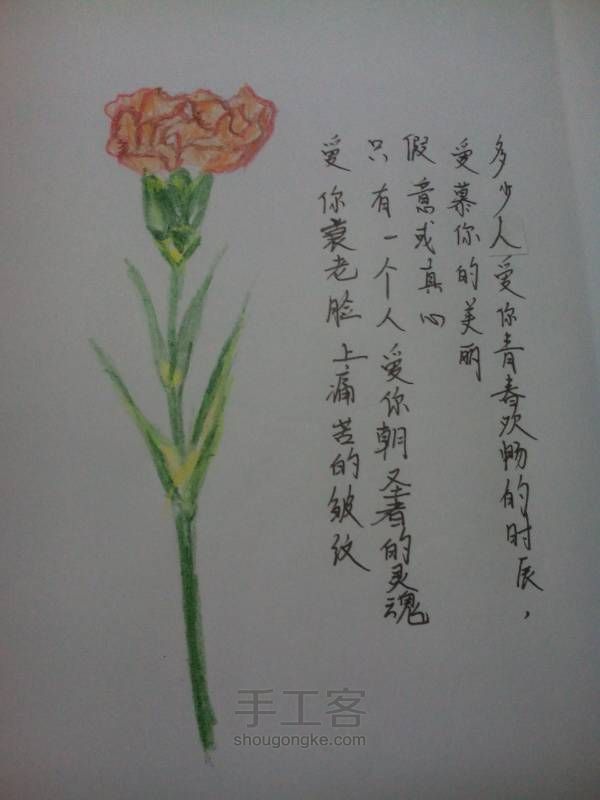 多少人爱你青春欢畅的时辰，
爱慕你的美丽
假意或真心
只有一个人爱你朝圣者的灵魂
爱你衰老脸上痛苦的皱纹
手工客
shougongke.com